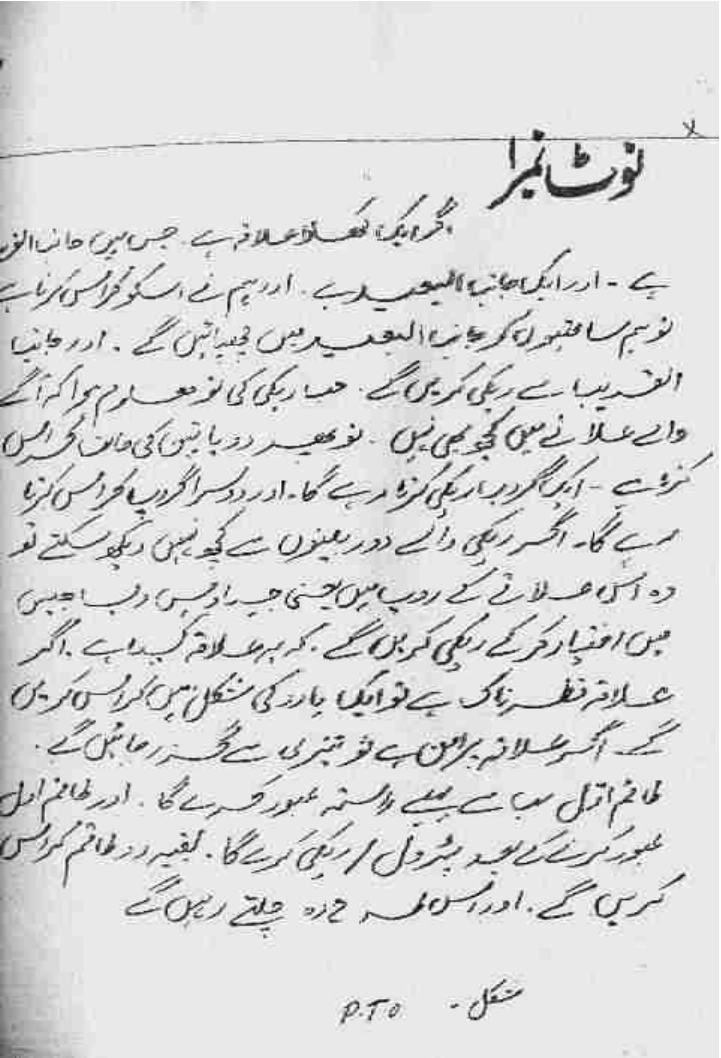 نوٹ نمبر ۱
اگر ایک کھلا علاقہ ہے۔ جس میں جانب القریب
ہے۔ اور ایک جانب البعید ہے۔ اور ہم نے اسکو کراس کرنا ہے
تو ہم ساتھیوں کو جانب البعید میں چھپائیں گے۔ اور جانب
القریب سے ریکی کریں گے۔ جب ریکی کی تو معلوم ہوا کہ آگے
والے علاقے میں کچھ بھی نہیں۔ تو پھر دو یا تین کی حالت کراس
کرنا ہے۔ ایک گروپ ریکی کرتا رہے گا۔ اور دوسرا گروپ کراس کرتا
رہے گا۔ اگر ریکی والے دوربینوں سے کچھ نہیں دیکھ سکتے تو
وہ اس علاقے کے روپ میں یعنی لباس
میں اختیار کر کے ریکی کریں گے۔ کہ یہ علاقہ کیسا ہے۔ اگر
علاقہ خطرناک ہے تو ایک یا دو کی شکل میں کراس کریں
گے۔ اگر علاقہ پرامن ہے تو تیزی سے گزر جائیں گے۔
طاقم اول سب سے پہلے راستہ عبور کرے گا۔ اور طاقم اول
عبور کرنے کے بعد پٹرول / ریکی کرے گا۔ بقیہ دو طاقم کراس
کریں گے۔ اور اس طرح وہ چلتے رہیں گے
شکل۔ P.T.O